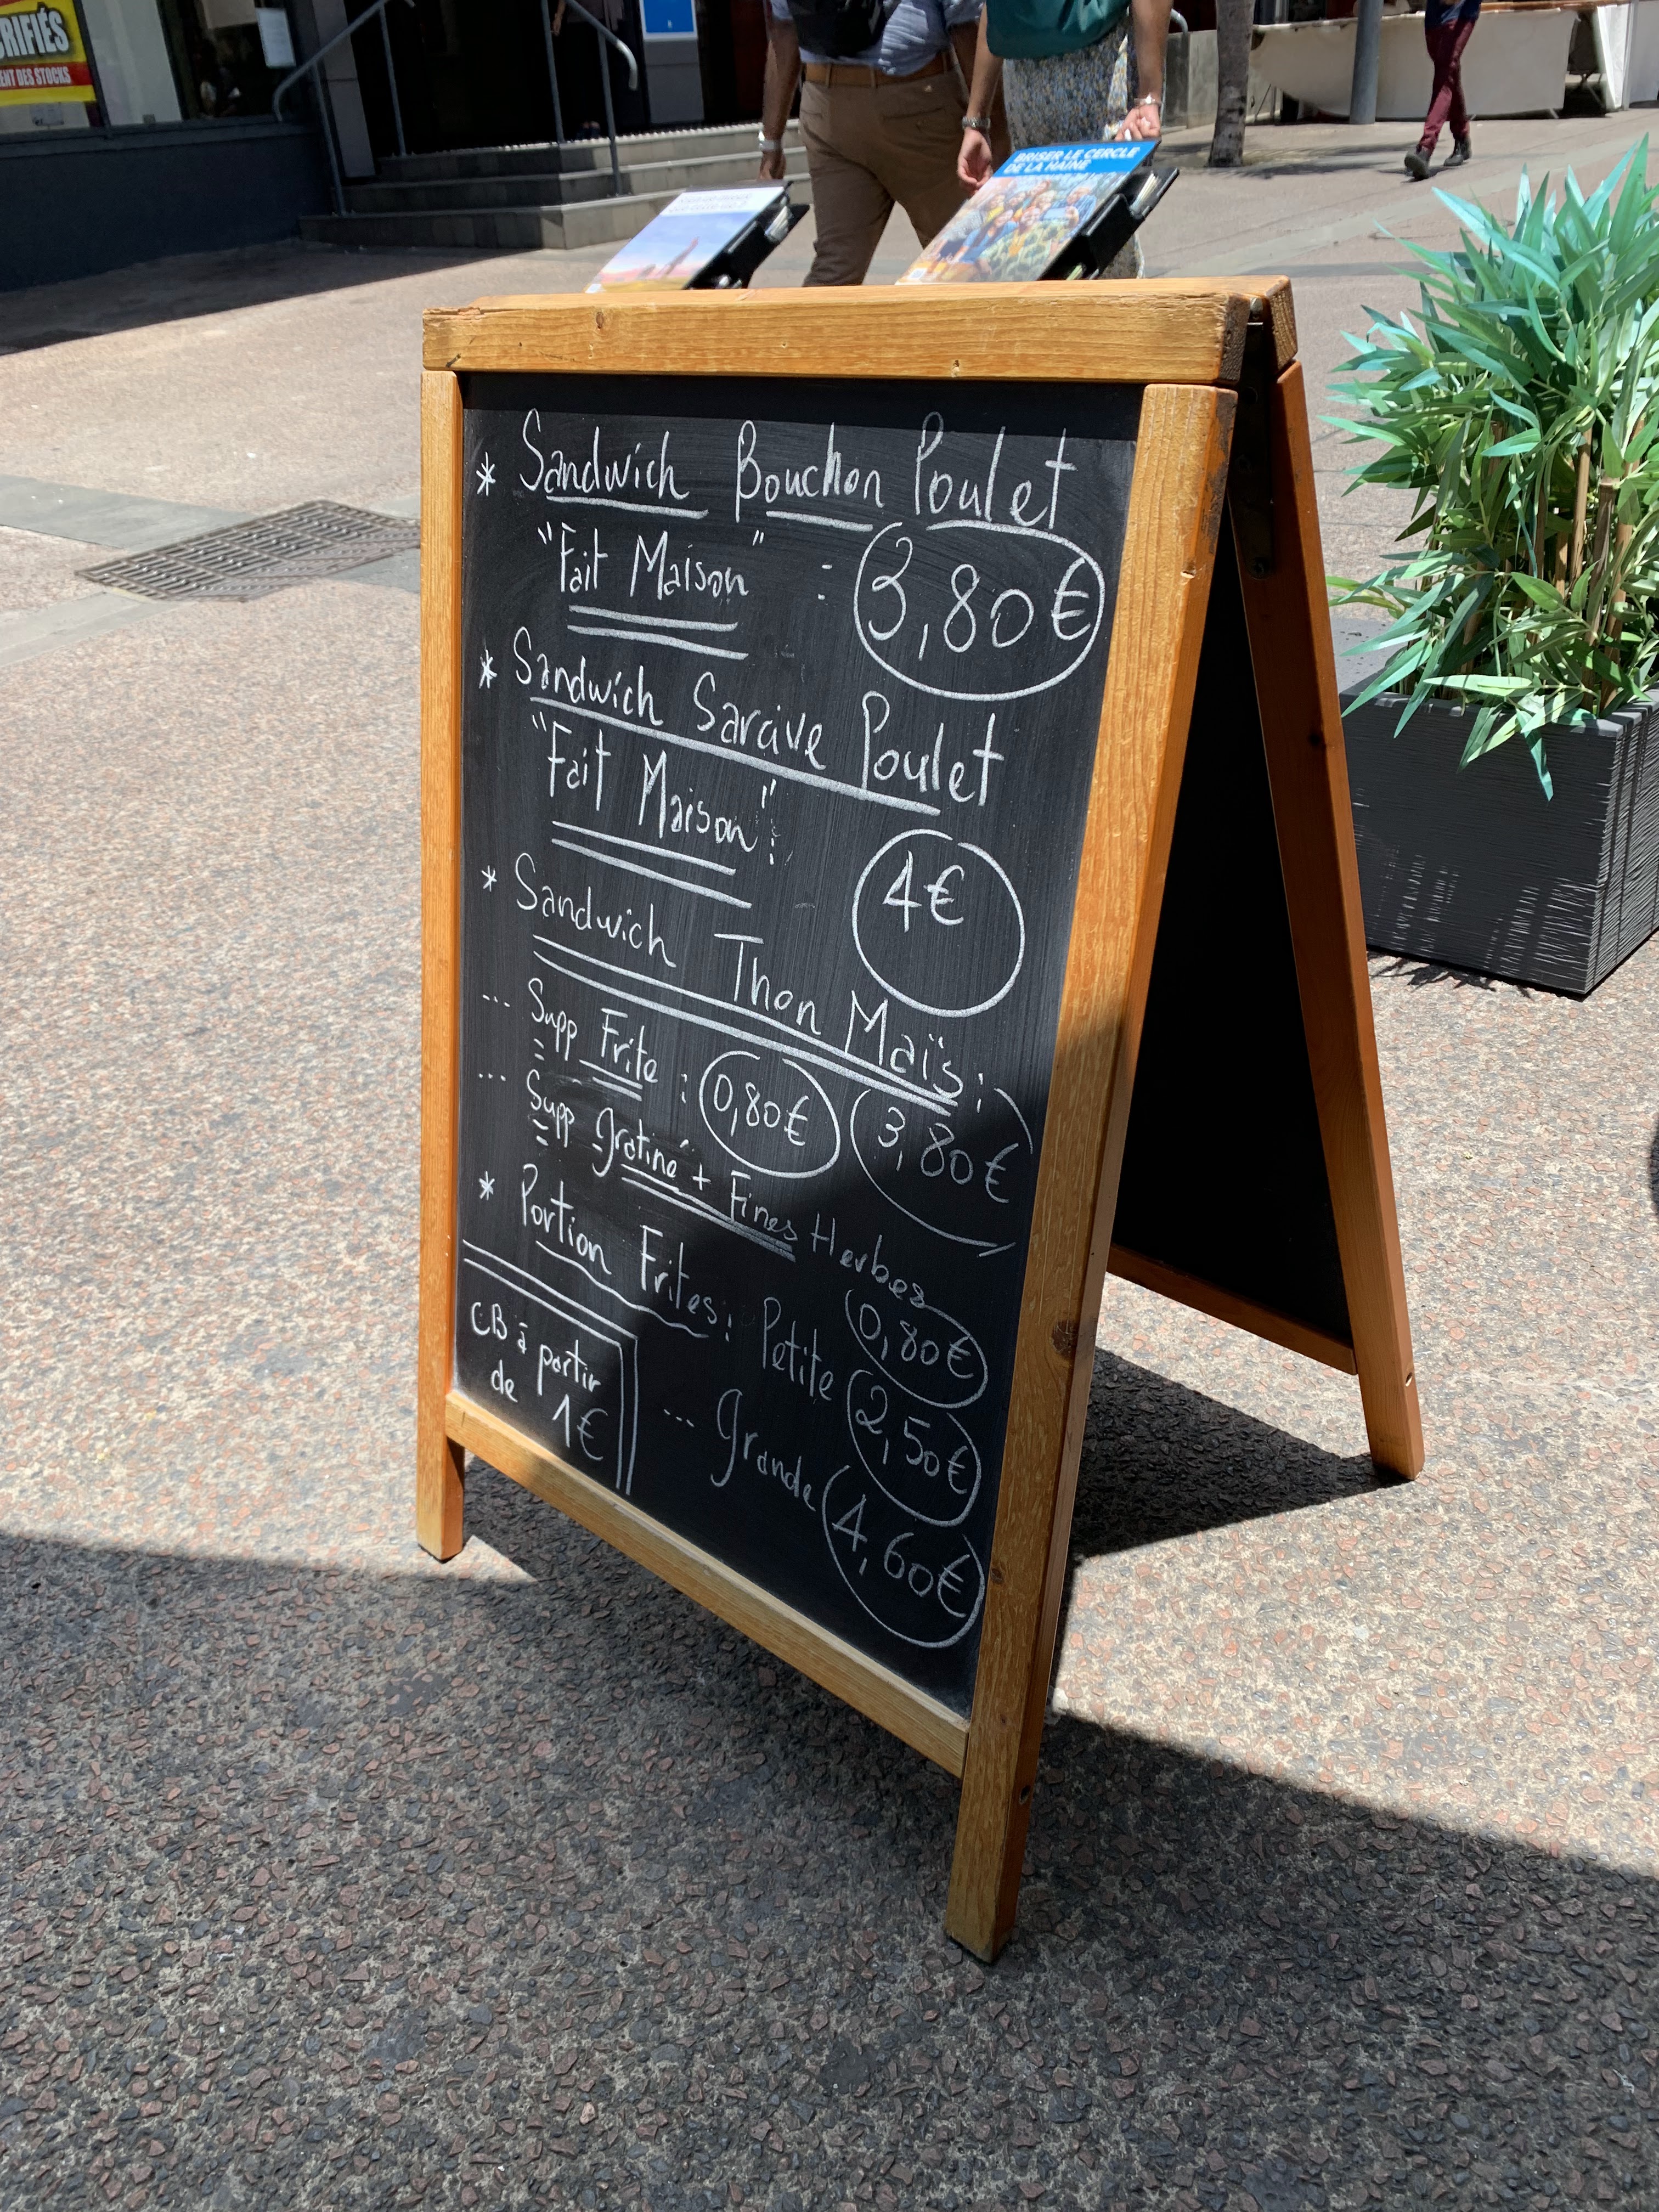 RIFIÉS
ENT DES STOCKS
BRISER LE CERCLE
DE LA HAINE
* Sandwich Bouchon Poulet
"Fait Maison" : 3,80€
* Sandwich Sarcive Poulet
"Fait Maison": 4€
* Sandwich Thon Maïs: 3,80€
... Supp Frite : 0,80€
... Supp gratiné + Fines Herbes 0,80€
* Portion Frites: Petite 2,50€
... Grande 4,60€
CB à partir
de 1€